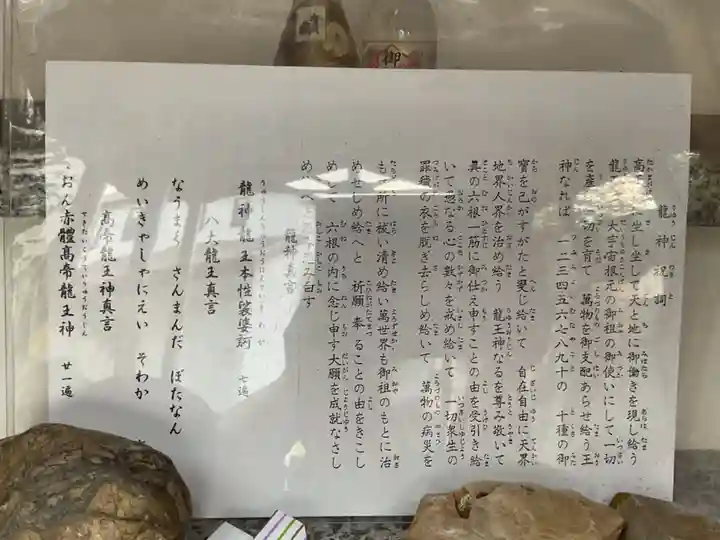 龍神祝詞
高 に坐し坐して天と地に御働きを現し給う
龍 大宇宙根元の御祖の御使いにして一切
を産 切を育て 萬物を御支配あらせ給う王
神なれば 一二三四五六七八九十の 十種の御
寶を己がすがたと変じ給いて 自在自由に天界
地界人界を治め給う 龍王神なるを尊み敬いて
眞の六根一筋に御仕え申すことの由を受引き給
いて 愚なる心の数々を戒め給いて 一切衆生の
罪穢の衣を脱ぎ去らしめ給いて 萬物の病災を
も 所に祓い清め給い萬世界も御祖のもとに治
めせしめ給へと 祈願奉ることの由をきこし
めして 六根の内に念じ申す大願を成就なさし
めへと み白す
龍神真言
龍神 龍王本性 婆訶 七遍
八大龍王真言
なうまく さんまんだ ぼたなん
めいきゃしゃにえい そわか
高帝龍王神真言
おん赤體高帝龍王神 廿一遍
御